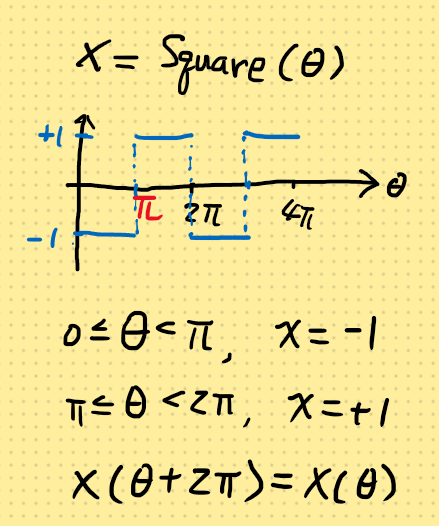 x = Square(θ)
+1
θ
π 2π 4π
-1
0 ≤ θ < π, x = -1
π ≤ θ < 2π, x = +1
x(θ+2π) = x(θ)